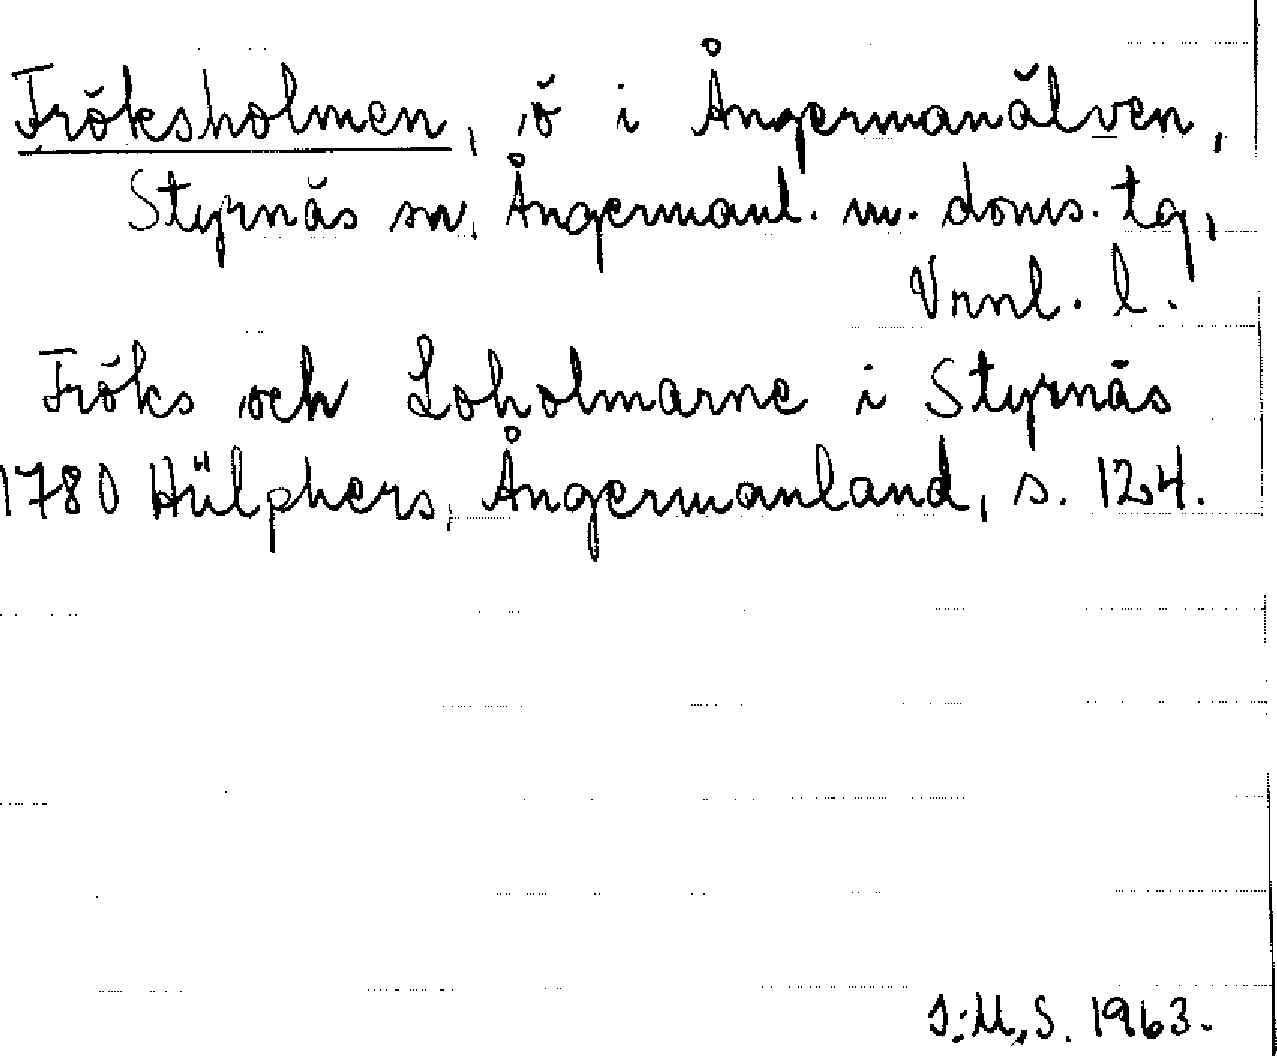 Fröksholmen, ö i Ångermanälven,
Styrnäs sn, Ångermanl. m. doms. tg,
Vrnl. l.
Fröks och Loholmarne i Styrnäs
1780 Hülphers, Ångermanland, s. 124.
I:M,S. 1963.